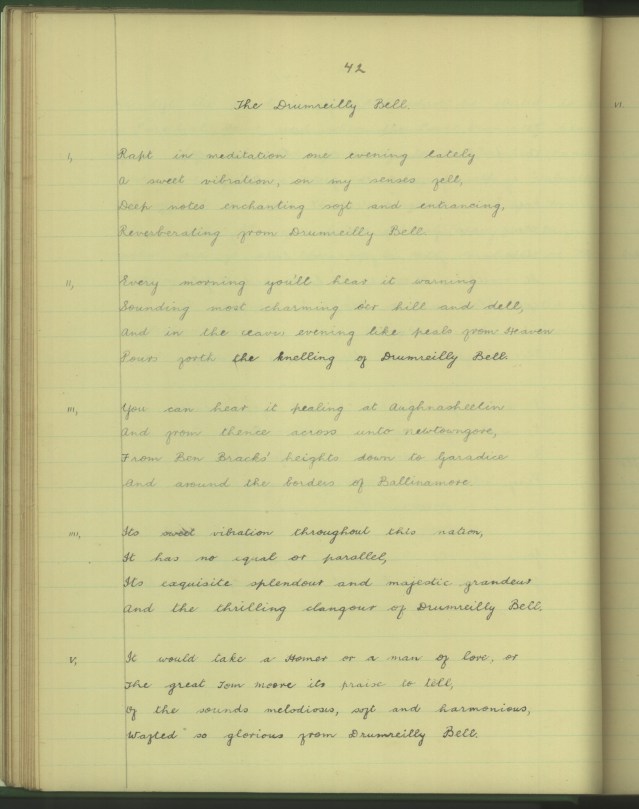 42
The Drumreilly Bell.
I, Rapt in meditation one evening lately
A sweet vibration, on my senses fell,
Deep notes enchanting soft and entrancing,
Reverberating from Drumreilly Bell.
II, Every morning you'll hear it warning
Sounding most charming o'er hill and dell,
And in the even evening like peals from Heaven
Pours forth the knelling of Drumreilly Bell.
III, You can hear it pealing at Aughnasheelin
And from thence across unto newtowngore,
From Ben Bracks' heights down to Garadice
And around the borders of Ballinamore.
IIII, Its sweet vibration throughout this nation,
It has no equal or parallel,
Its exquisite splendour and majestic grandeur
And the thrilling clangour of Drumreilly Bell.
V, It would take a Homer or a man of lore, or
The great Tom Moore its praise to tell,
Of the sounds melodiosis, soft and harmonious,
Wafted so glorious from Drumreilly Bell.
VI